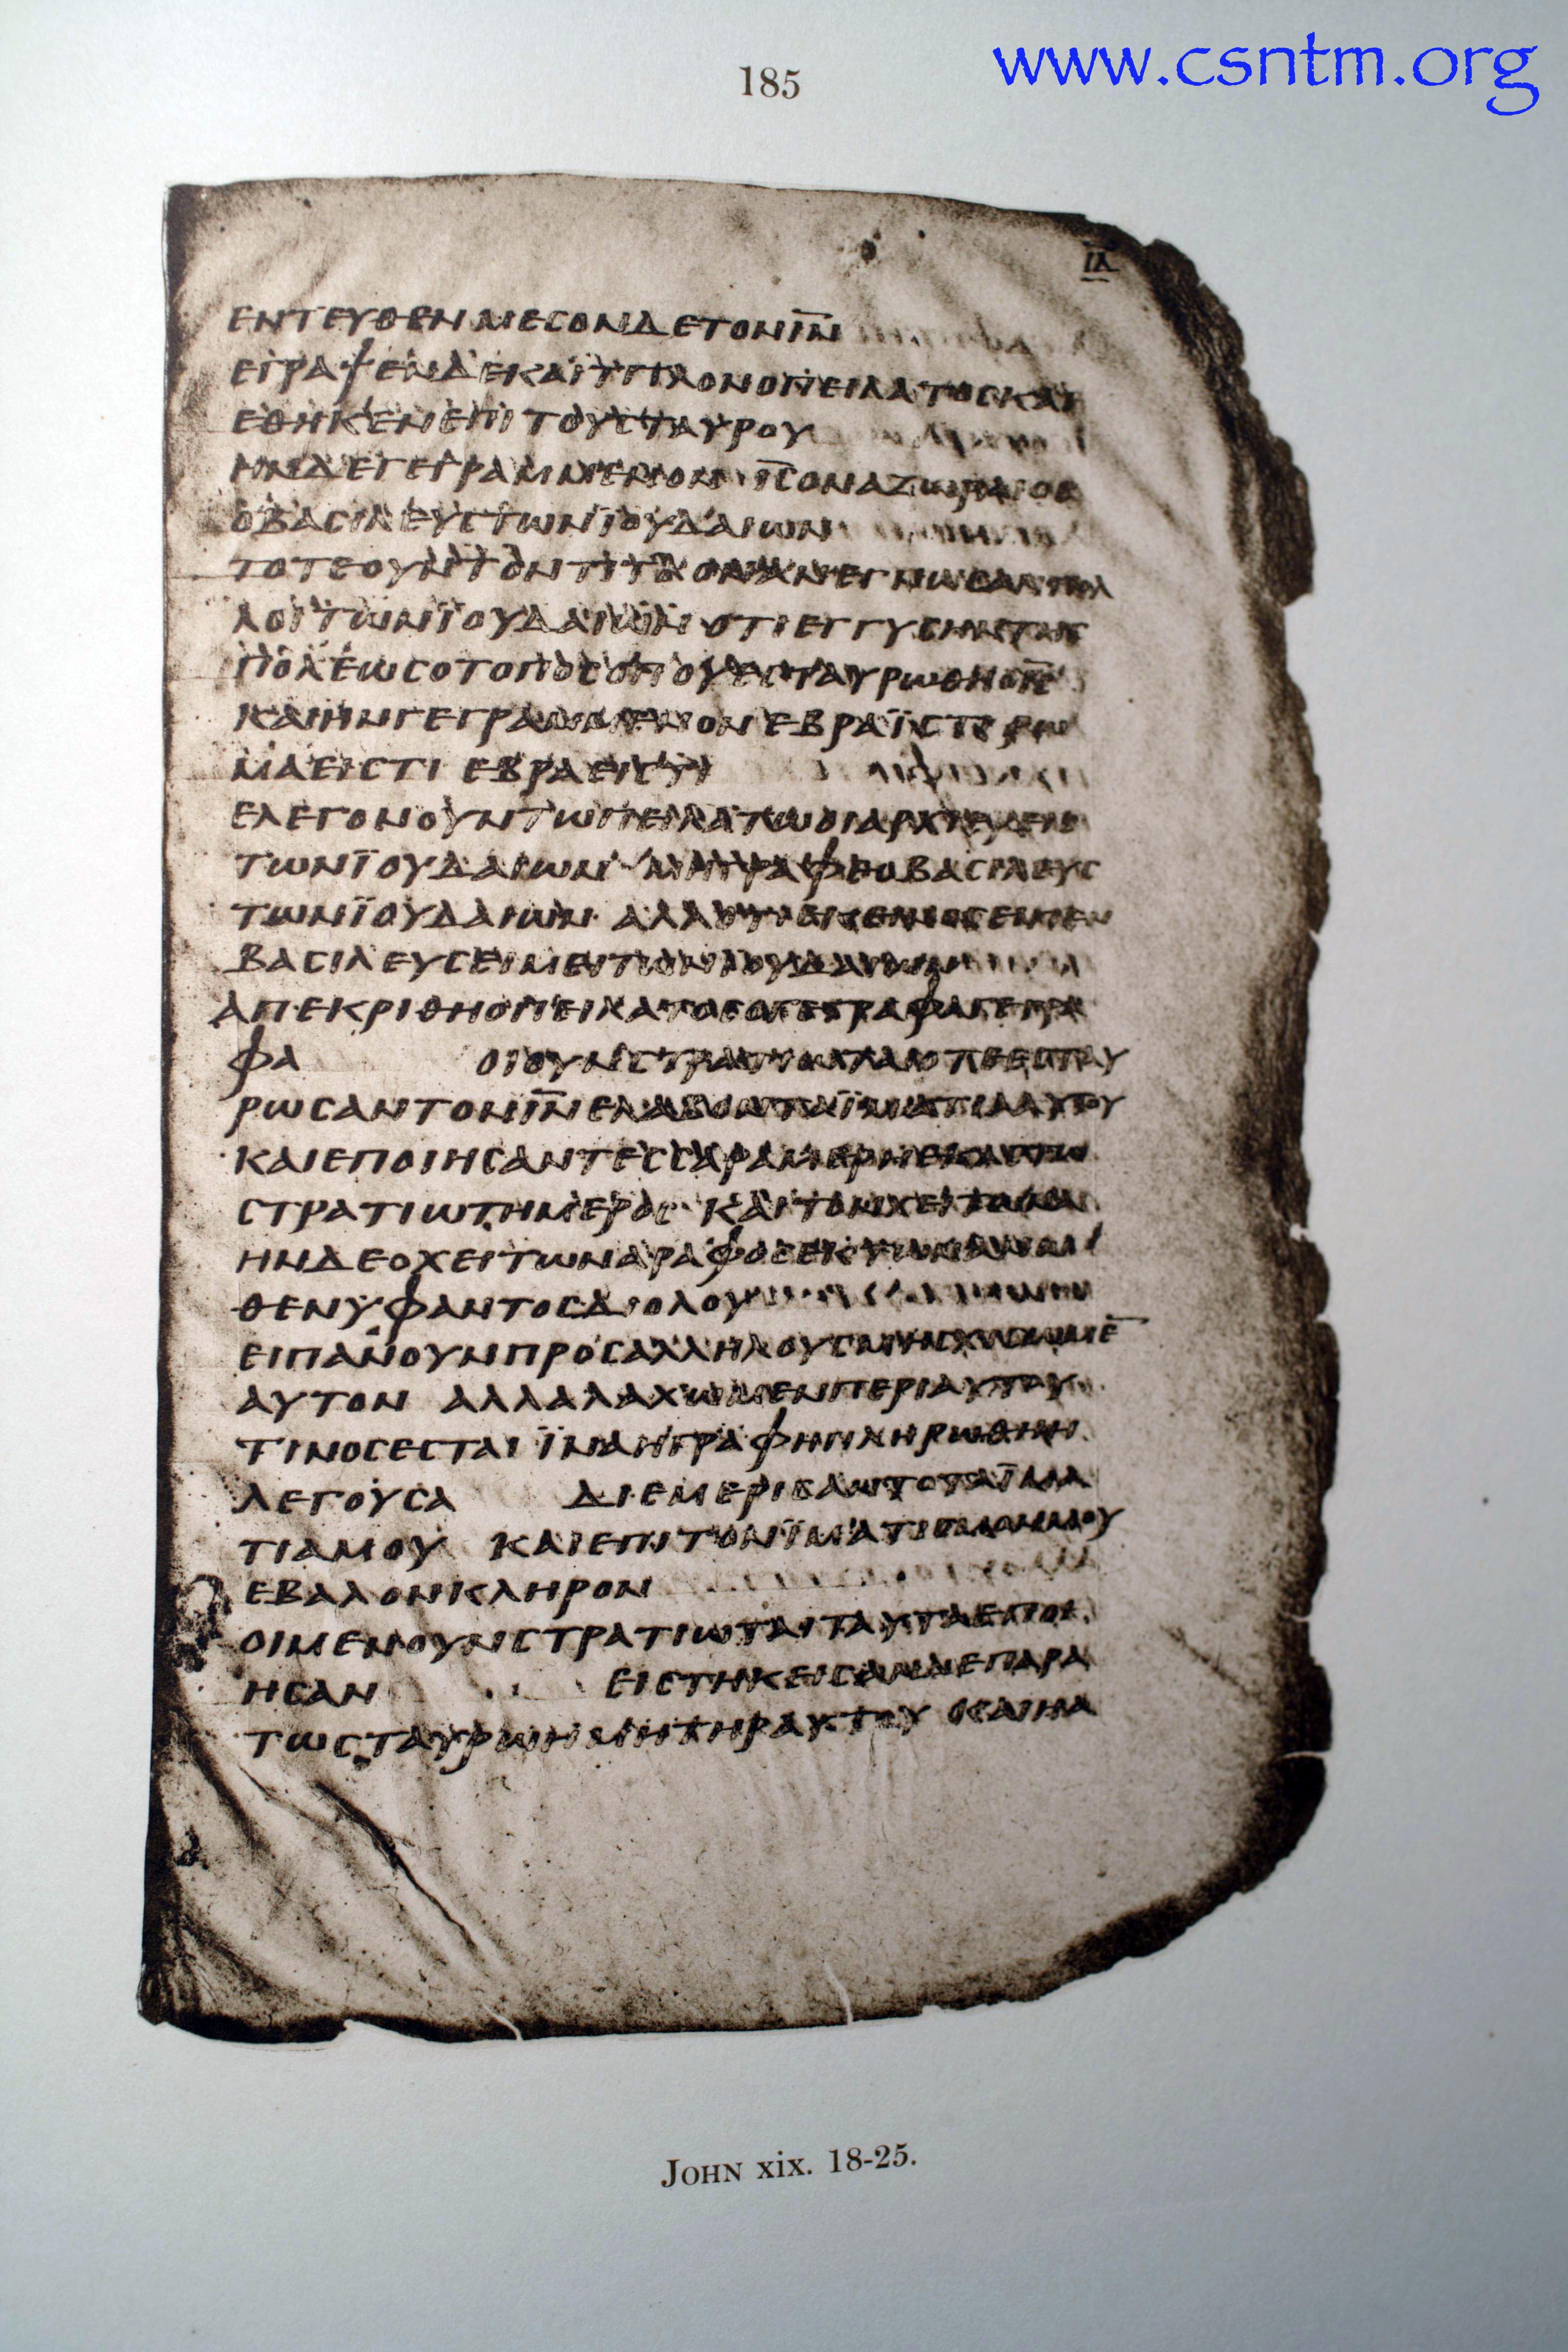 185
www.csntm.org
ΙΑ
ΕΝΤΕΥΘΕΝ ΜΕCΟΝΔΕΤΟΝΙ̅Ν̅
ΕΓΡΑΨΕΝΔΕΚΑΙΤΙΤΛΟΝΟΠΕΙΛΑΤΟCΚΑΙ
ΕΘΗΚΕΝΕΠΙΤΟΥCΤΑΥΡΟΥ
ΗΝΔΕΓΕΓΡΑΜΜΕΝΟΝ Ι̅C̅ΟΝΑΖΩΡΑΙΟC
ΟΒΑCΙΛΕΥCΤΩΝΪΟΥΔΑΙΩΝ
ΤΟΤΕΟΥΝΤΟΝΤΙΤΛΟΝΑΝΕΓΝΩCΑΝΠΟΛ
ΛΟΙΤΩΝΪΟΥΔΑΙΩΝ ΟΤΙΕΓΓΥCΗΝΤΗC
ΠΟΛΕΩCΟΤΟΠΟCΟΠΟΥΕCΤΑΥΡΩΘΗΟΙ̅C̅
ΚΑΙΗΝΓΕΓΡΑΜΜΕΝΟΝΕΒΡΑΪCΤΙΡΩ
ΜΑΕΙCΤΙ ΕΒΡΑΕΙCΤΙ
ΕΛΕΓΟΝΟΥΝΤΩΠΕΙΛΑΤΩΟΙΑΡΧΙΕΡΕΙC
ΤΩΝΪΟΥΔΑΙΩΝ ΜΗΓΡΑΦΕΟΒΑCΙΛΕΥC
ΤΩΝΪΟΥΔΑΙΩΝ ΑΛΛΟΤΙΕΚΕΙΝΟCΕΙΠΕΝ
ΒΑCΙΛΕΥCΕΙΜΕΙΤΩΝΪΟΥΔΑΙΩΝ
ΑΠΕΚΡΙΘΗΟΠΕΙΛΑΤΟCΟΓΕΓΡΑΦΑΓΕΓΡΑ
ΦΑ ΟΙΟΥΝCΤΡΑΤΙΩΤΑΙΟΤΕΕCΤΑΥ
ΡΩCΑΝΤΟΝΙ̅Ν̅ΕΛΑΒΟΝΤΑΪΜΑΤΙΑΑΥΤΟΥ
ΚΑΙΕΠΟΙΗCΑΝΤΕCCΑΡΑΜΕΡΗΕΚΑCΤΩ
CΤΡΑΤΙΩΤΗΜΕΡΟC ΚΑΙΤΟΝΧΕΙΤΩΝΑ
ΗΝΔΕΟΧΕΙΤΩΝΑΡΑΦΟCΕΚΤΩΝΑΝΩ
ΘΕΝΥΦΑΝΤΟCΔΙΟΛΟΥ
ΕΙΠΑΝΟΥΝΠΡΟCΑΛΛΗΛΟΥCΜΗCΧΙCΩΜΕ̅
ΑΥΤΟΝ ΑΛΛΑΛΑΧΩΜΕΝΠΕΡΙΑΥΤΟΥ
ΤΙΝΟCΕCΤΑΙ ΪΝΑΗΓΡΑΦΗΠΛΗΡΩΘΗΗ
ΛΕΓΟΥCΑ ΔΙΕΜΕΡΙCΑΝΤΟΤΑΪΜΑ
ΤΙΑΜΟΥ ΚΑΙΕΠΙΤΟΝΪΜΑΤΙCΜΟΝΜΟΥ
ΕΒΑΛΟΝΚΛΗΡΟΝ
ΟΙΜΕΝΟΥΝCΤΡΑΤΙΩΤΑΙΤΑΥΤΑΕΠΟΙ
ΗCΑΝ ΕΙCΤΗΚΕΙCΑΝΔΕΠΑΡΑ
ΤΩCΤΑΥΡΩΗΜΗΤΗΡΑΥΤΟΥ ΚΑΙΗΑ
JOHN xix. 18-25.